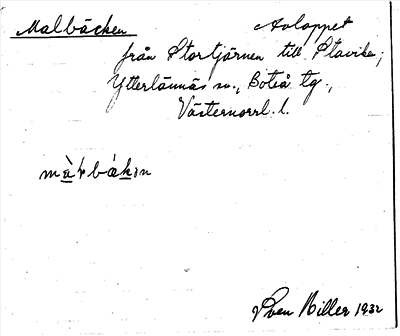 Malbäcken Avloppet
från Stortjärnen till Stavika;
Ytterlännäs sn., Boteå tg.,
Västernorrl. l.
Sven Hiller 1932